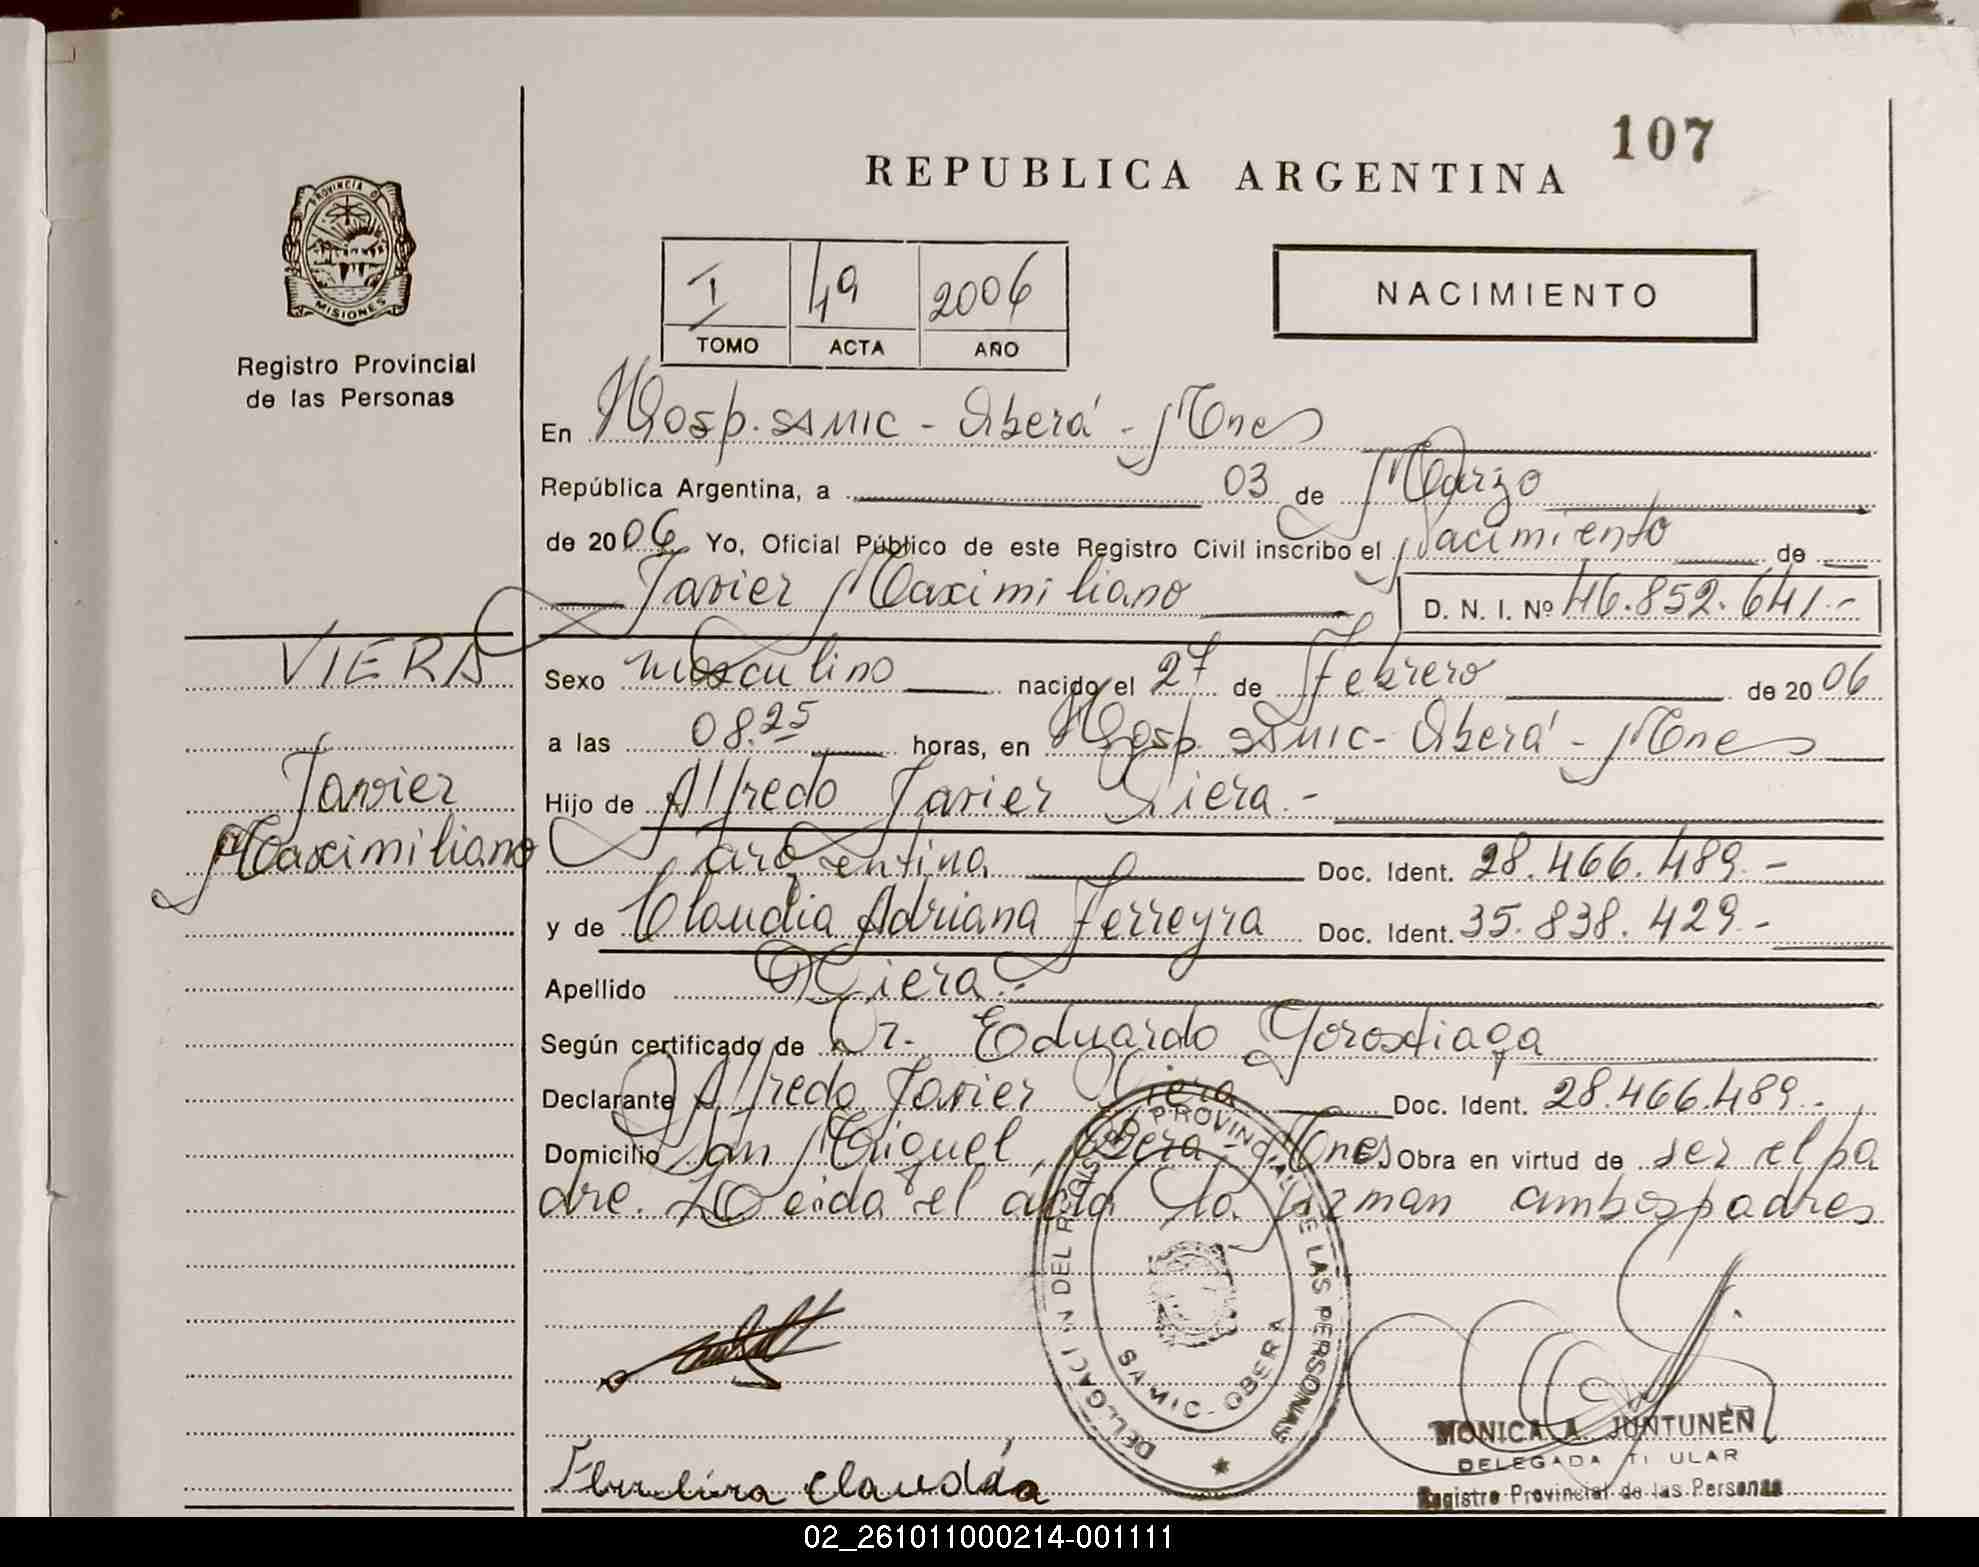 107
REPUBLICA ARGENTINA
PROVINCIA DE
MISIONES
Registro Provincial
de las Personas
I 49 2006
TOMO ACTA AÑO
NACIMIENTO
En Hosp. SAMIC - Oberá - Mnes
República Argentina, a 03 de Marzo
de 2006 Yo, Oficial Público de este Registro Civil inscribo el Nacimiento de
Javier Maximiliano D. N. I. Nº 46.852.641.-
VIERA
Sexo masculino nacido el 27 de Febrero de 2006
a las 08.25 horas, en Hosp. SAMIC - Oberá - Mnes
Javier
Maximiliano
Hijo de Alfredo Javier Viera.-
argentina Doc. Ident. 28.466.489.-
y de Claudia Adriana Ferreyra Doc. Ident. 35.838.429.-
Apellido Viera.-
Según certificado de Dr. Eduardo Gorostiaga
Declarante Alfredo Javier Viera Doc. Ident. 28.466.489.-
Domicilio San Miguel, Oberá - Mnes Obra en virtud de ser el pa
dre. Leida el acta la firman ambos padres
DELEGACI N DEL REGISTRO PROVINCIAL DE LAS PERSONAS
SAMIC - OBERA
MONICA A. JUNTUNEN
DELEGADA TI ULAR
Registro Provincial de las Personas
claudia
02_261011000214-001111